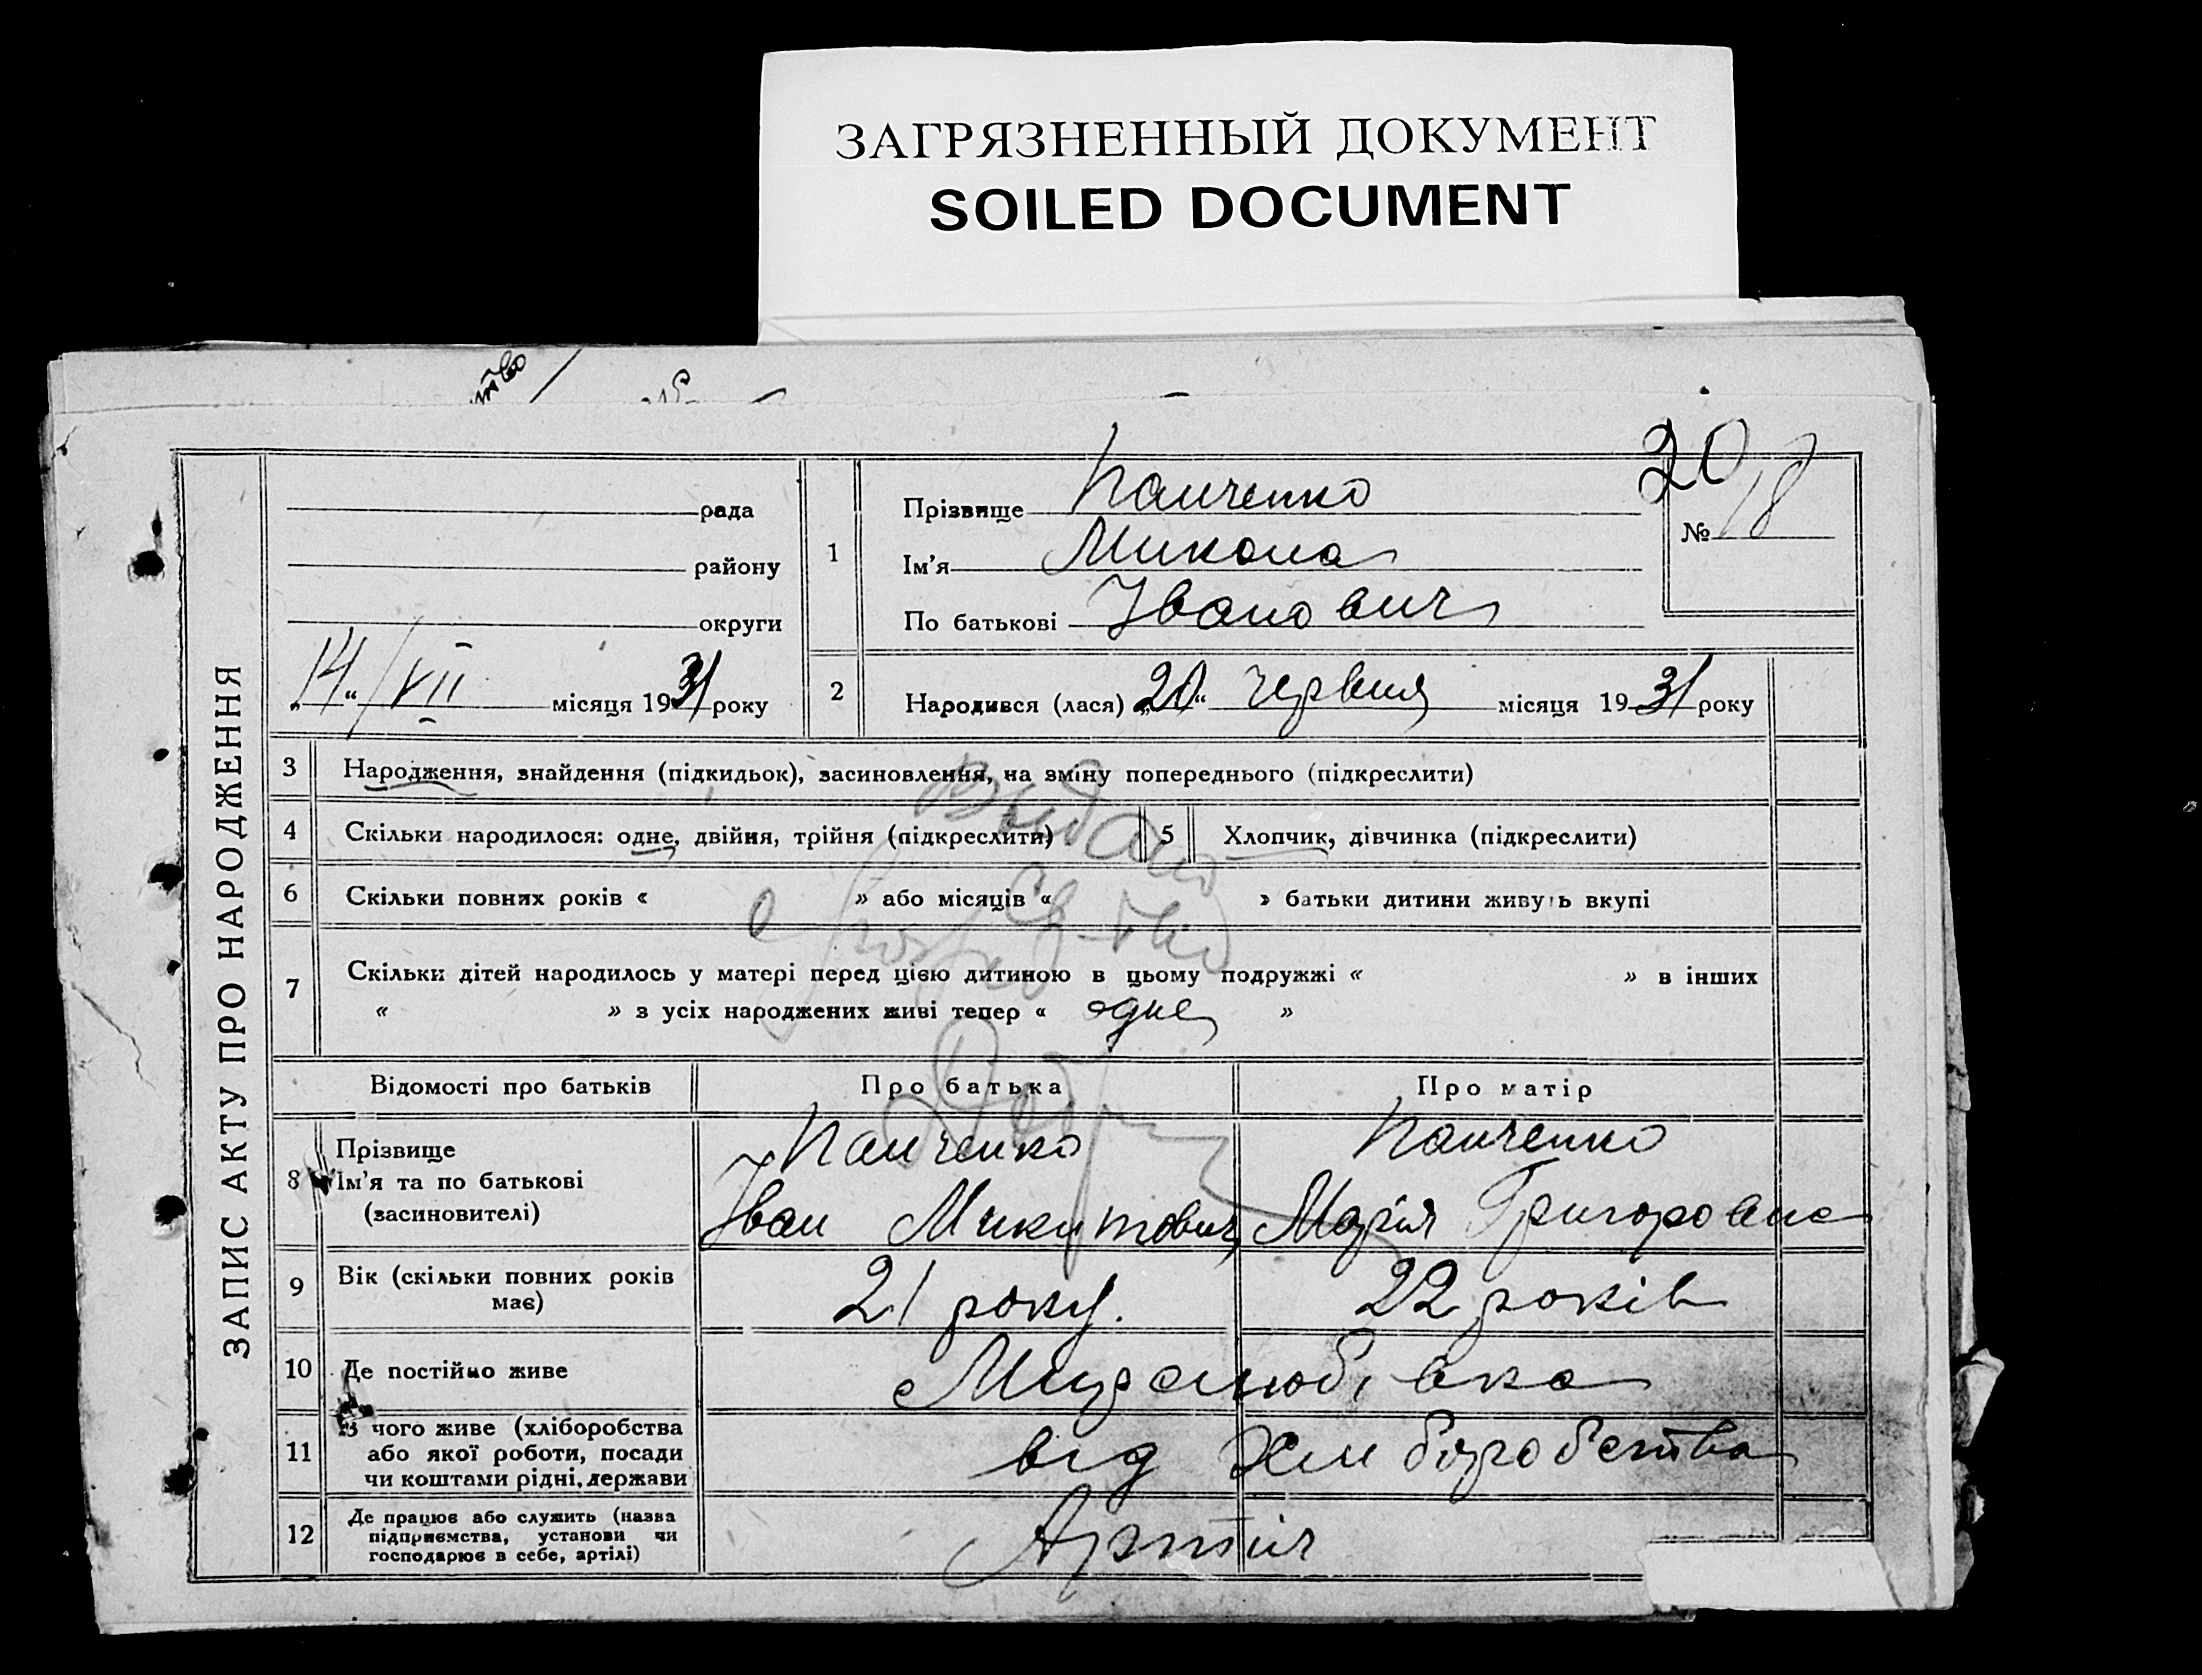 ЗАГРЯЗНЕННЫЙ ДОКУМЕНТ
SOILED DOCUMENT
ство
20
ЗАПИС АКТУ ПРО НАРОДЖЕННЯ
рада
району
округи
„14“ VII місяця 1931 року
1
Прізвище Панченко
Ім'я Микола
По батькові Іванович
№ 18
2 Народився (лася) „20“ червня місяця 1931 року
3 Народження, знайдення (підкидьок), засиновлення, на зміну попереднього (підкреслити)
4 Скільки народилося: одне, двійня, трійня (підкреслити)
5 Хлопчик, дівчинка (підкреслити)
6 Скільки повних років « » або місяців « » батьки дитини живуть вкупі
7 Скільки дітей народилось у матері перед цією дитиною в цьому подружжі « » в інших
« » з усіх народжених живі тепер « одне »
Видано
Відомості про батьків Про батька Про матір
8 Прізвище
Ім'я та по батькові
(засиновителі)
Панченко
Іван Микитович
Панченко
Марія Григоровна
9 Вік (скільки повних років
має)
21 року.
22 років
10 Де постійно живе
11 З чого живе (хліборобства
або якої роботи, посади
чи коштами рідні, держави
від хліборобства
12 Де працює або служить (назва
підприємства, установи чи
господарює в себе, артілі)
Артіль